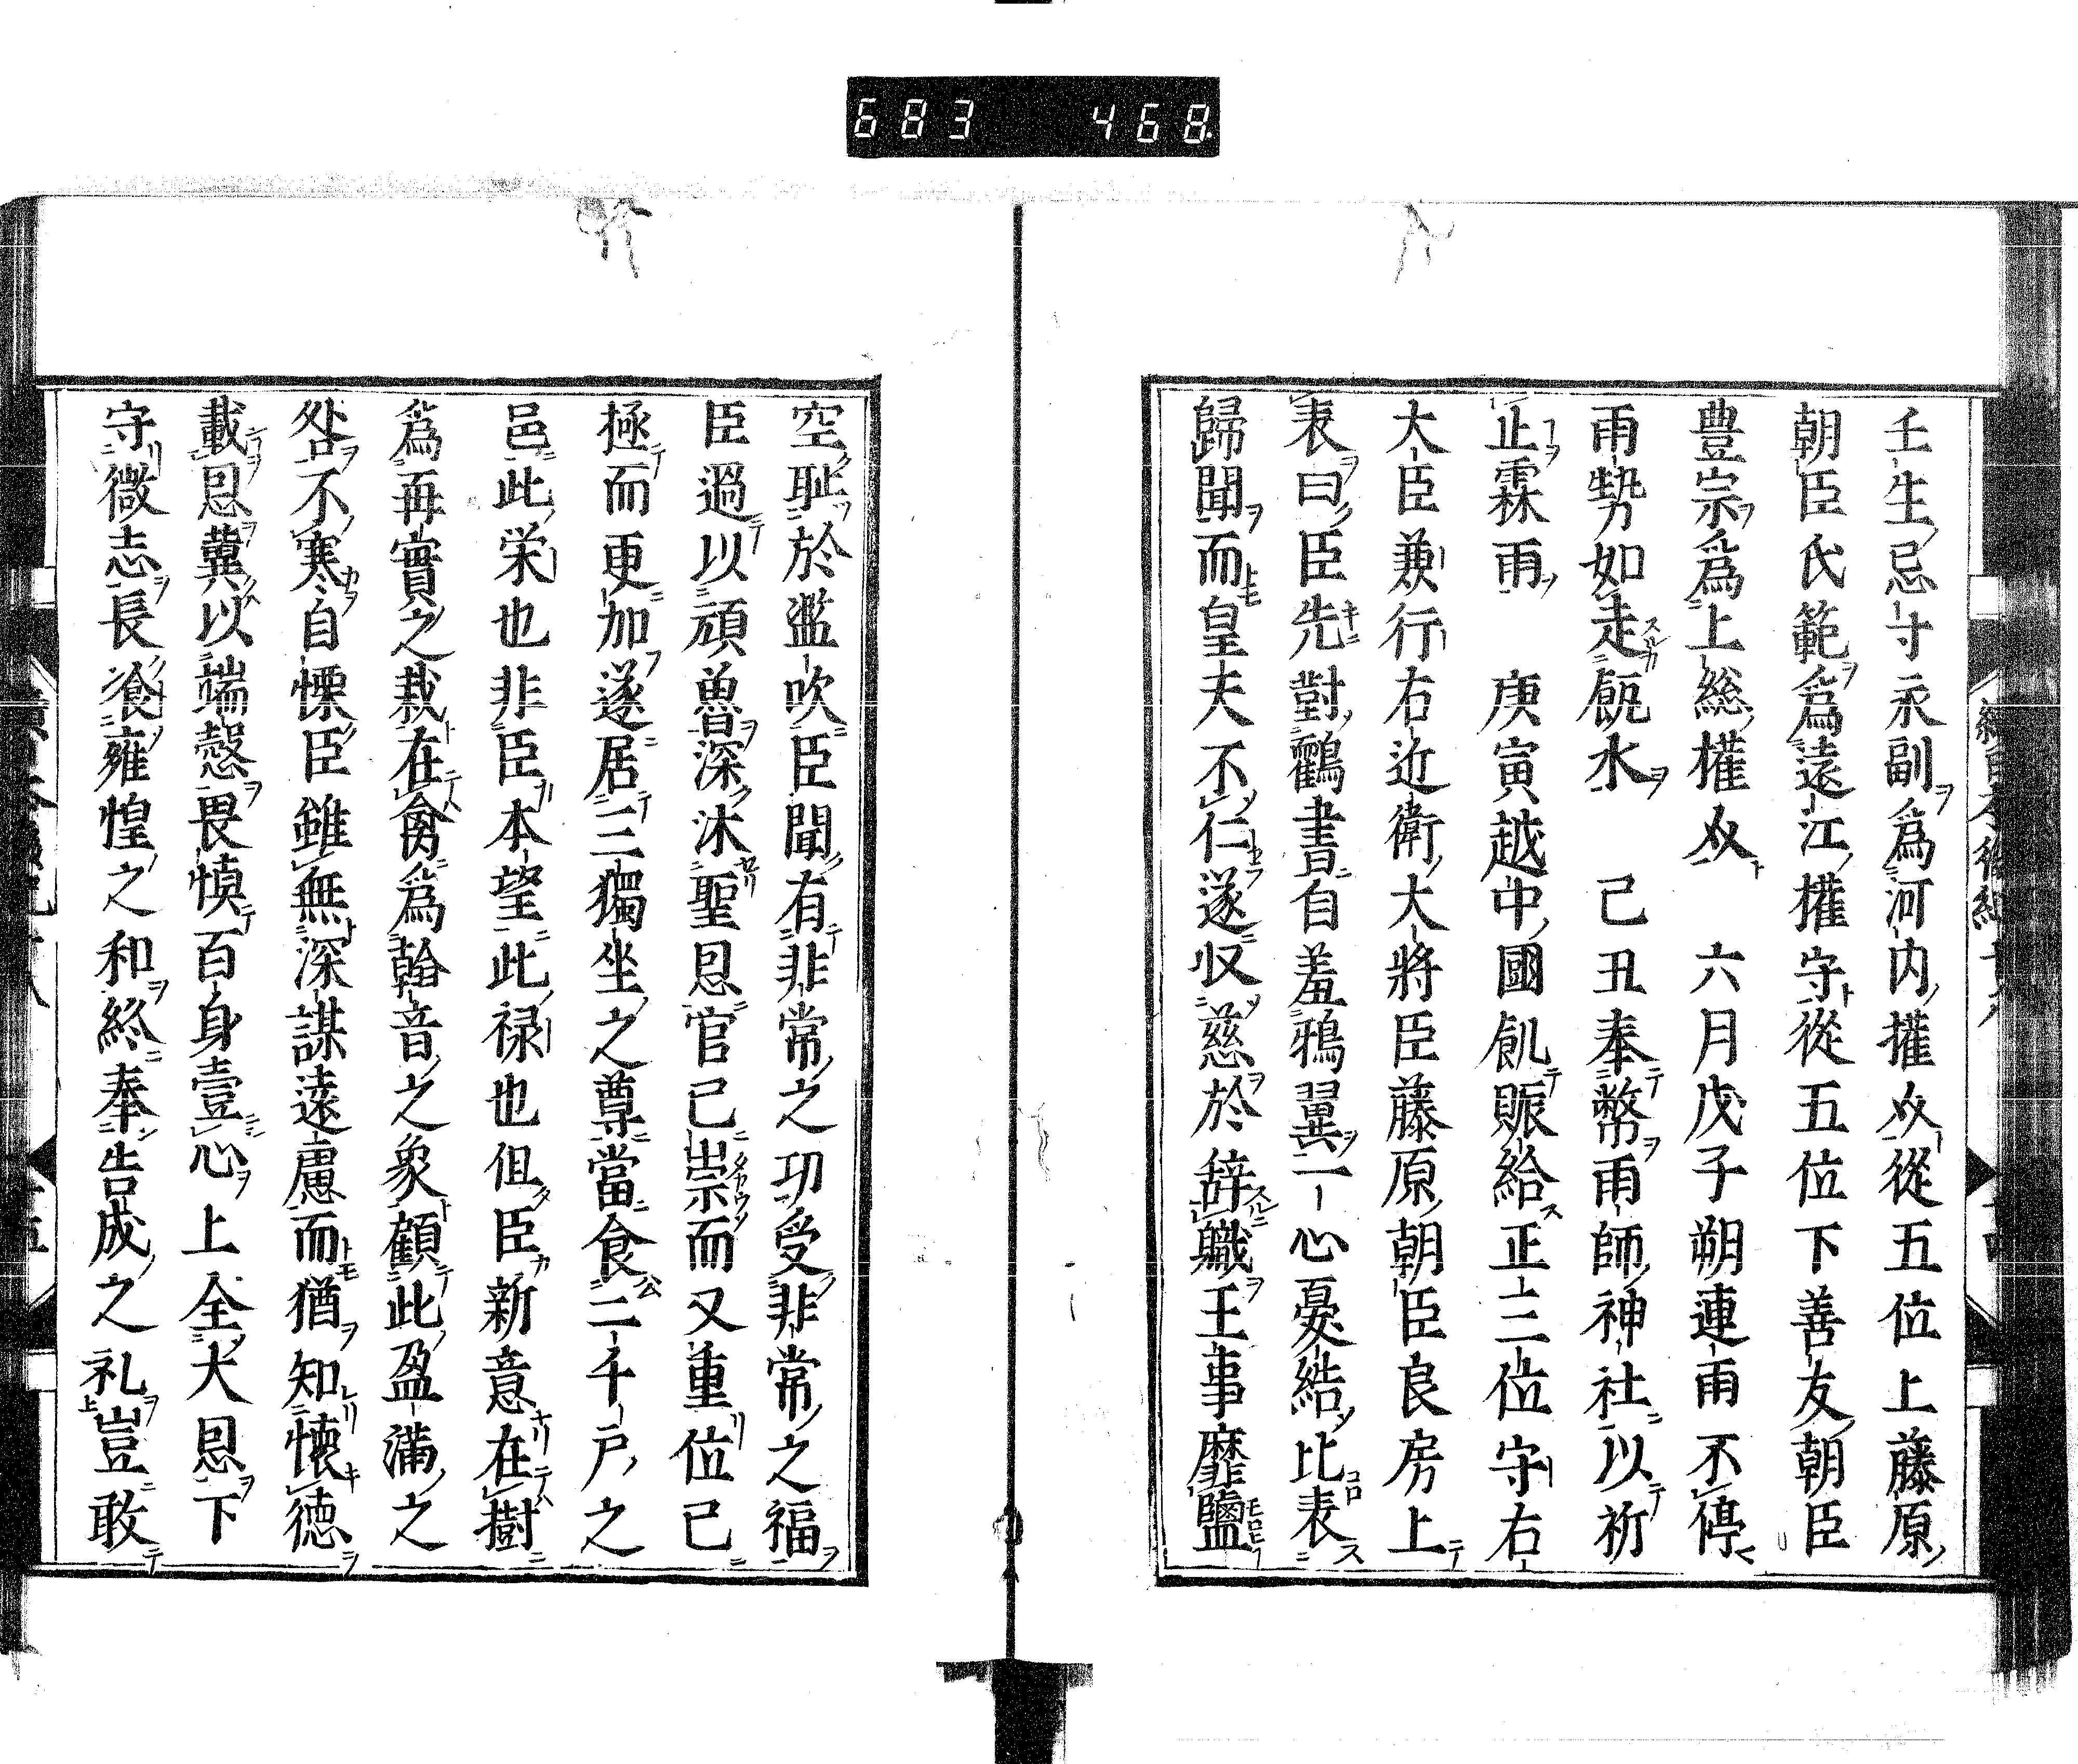 683 468
壬生忌寸永副爲河内權㸚從五位上藤原
朝臣氏範爲遠江權守從五位下善友朝臣
豊宗爲上総權㸚 六月戊子朔連雨不停
雨勢如走瓴水 己丑奉幣雨師神社以祈
止霖雨 庚寅越中國飢賑給正三位守右
大臣兼行右近衛大將臣藤原朝臣良房上
表曰臣先對鸖書自羞鴉翼一心憂結比表
歸聞而皇夫不仁遂収慈於辞軄王事靡鹽
空耻於濫吹臣聞有非常之功受非常之福
臣過以頑魯深沐聖恩官已崇而又重位已
極而更加遂居三獨坐之尊當食二千戸之
邑此栄也非臣本望此禄也但臣新意在樹
爲再實之栽在禽爲翰音之象顧此盈満之
咎不寒自慄臣雖無深謀遠慮而猶知懐徳
載恩冀以端愨畏慎百身壹心上全大恩下
守微志長飡雍惶之和終奉告成之礼豈敢